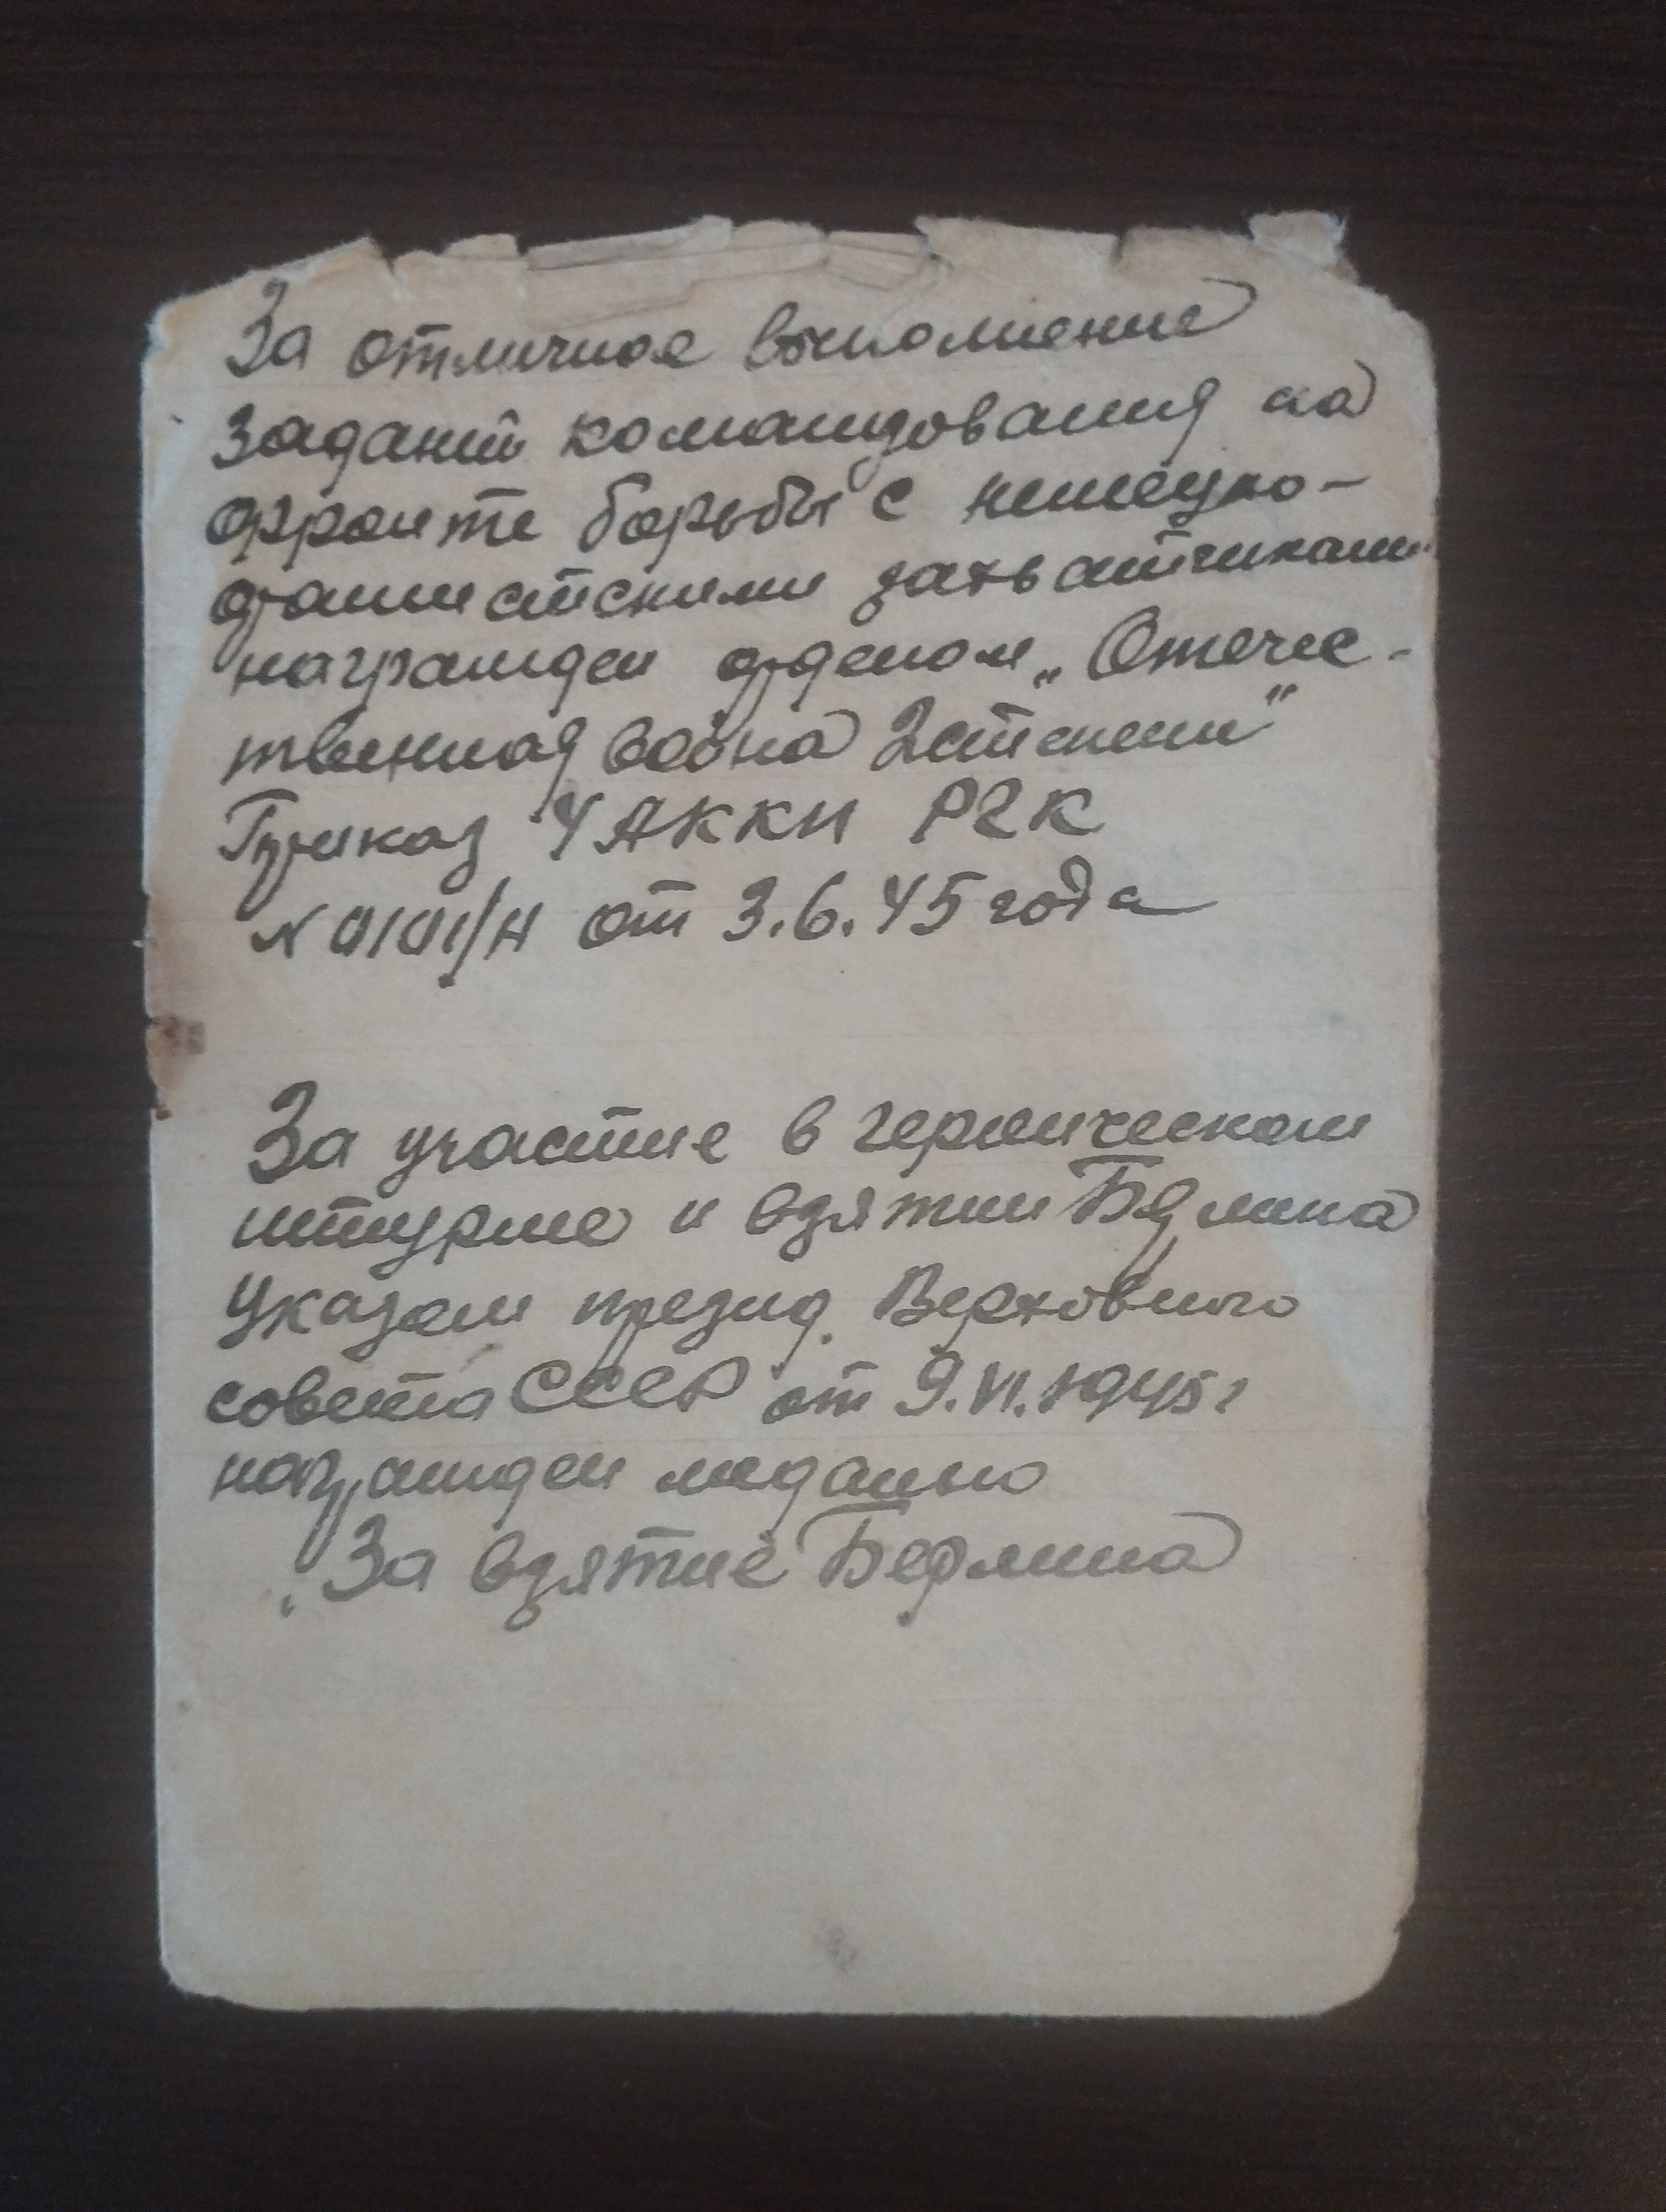 За отличное выполнение
заданий командования на
фронте борьбы с немецко-
фашистскими захватчиками
награжден орденом „Отече-
твенная война 2 степени"
Приказ 4 АККП РГК
от 3.6.45 года
За участие в героическом
штурме и взятии Берлина
Указом презид. Верховного
совета СССР от 9.VI.1945г
награжден медалью
„За взятие Берлина